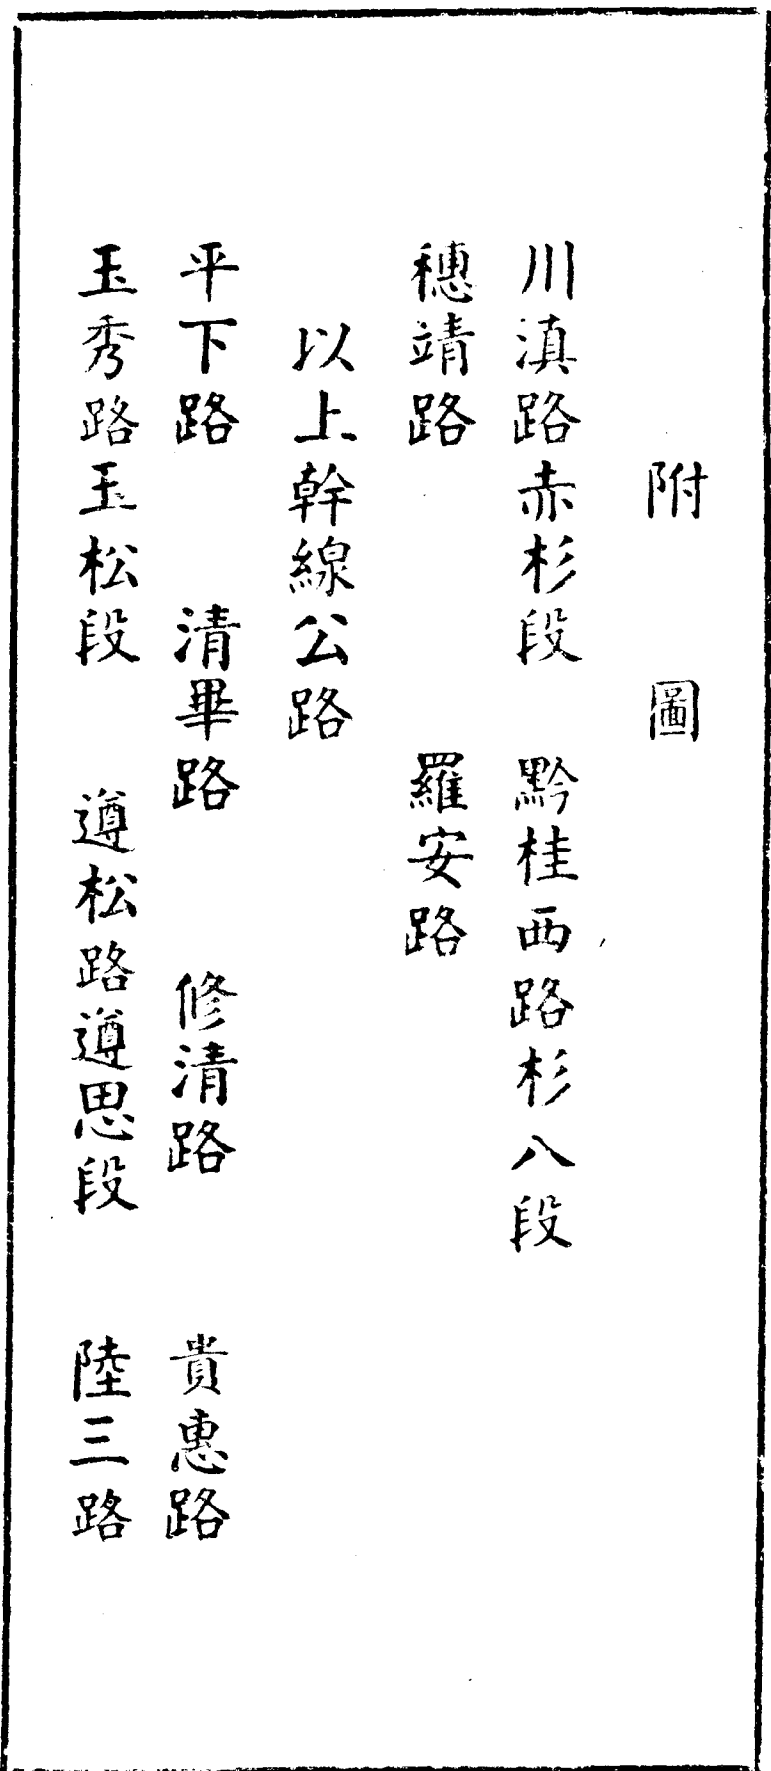 附　圖
川滇路赤杉段　黔桂西路杉八段
穗靖路　　　　羅安路
以上幹線公路
平下路　　清畢路　　修清路　　貴惠路
玉秀路玉松段　遵松路遵思段　陸三路